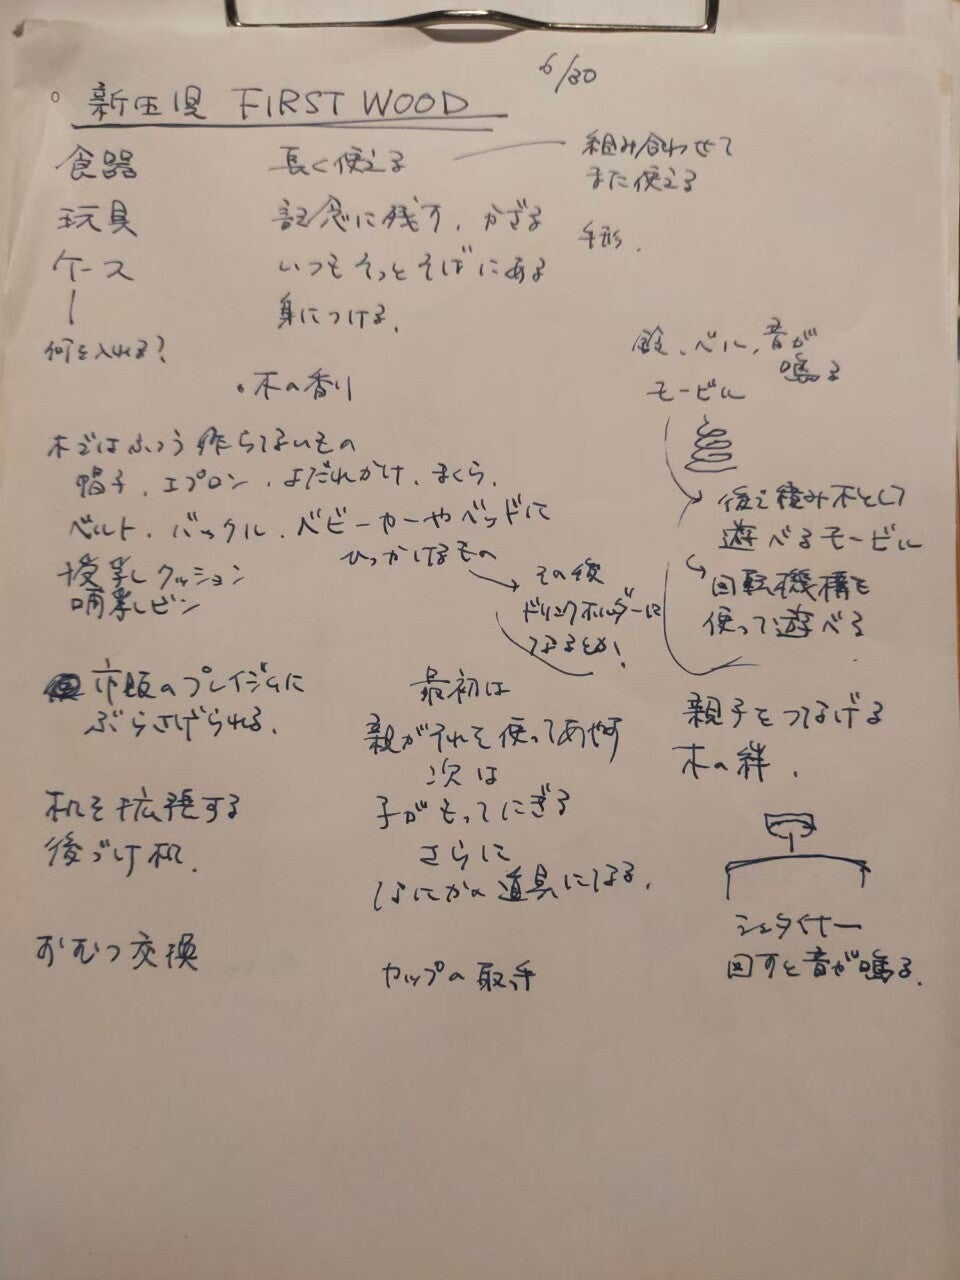 6/30
新玉県 FIRST WOOD
食器
長く使える
組み合わせて
また使える
玩具
記念に残す、かざる
手形.
ケース
いつもそっとそばにある
身につける.
何を入れる?
鈴、ベル、音が
鳴る
モービル
・木の香り
木ではふつう作らないもの
帽子、エプロン、よだれかけ、まくら、
ベルト、バックル、ベビーカーやベッドに
ひっかけるもの
授乳クッション
哺乳ビン
その後
ドリンクホルダーに
なるとか!
後で積み木として
遊べるモービル
回転機構を
使って遊べる
市販のプレイジムに
ぶらさげられる.
最初は
親がそれを使ってあやす
次は
子がもってにぎる
さらに
なにかの道具になる.
親子をつなげる
木の絆.
机を拡張する
後づけ机.
おむつ交換
カップの取っ手
シュタイナー
回すと音が鳴る.